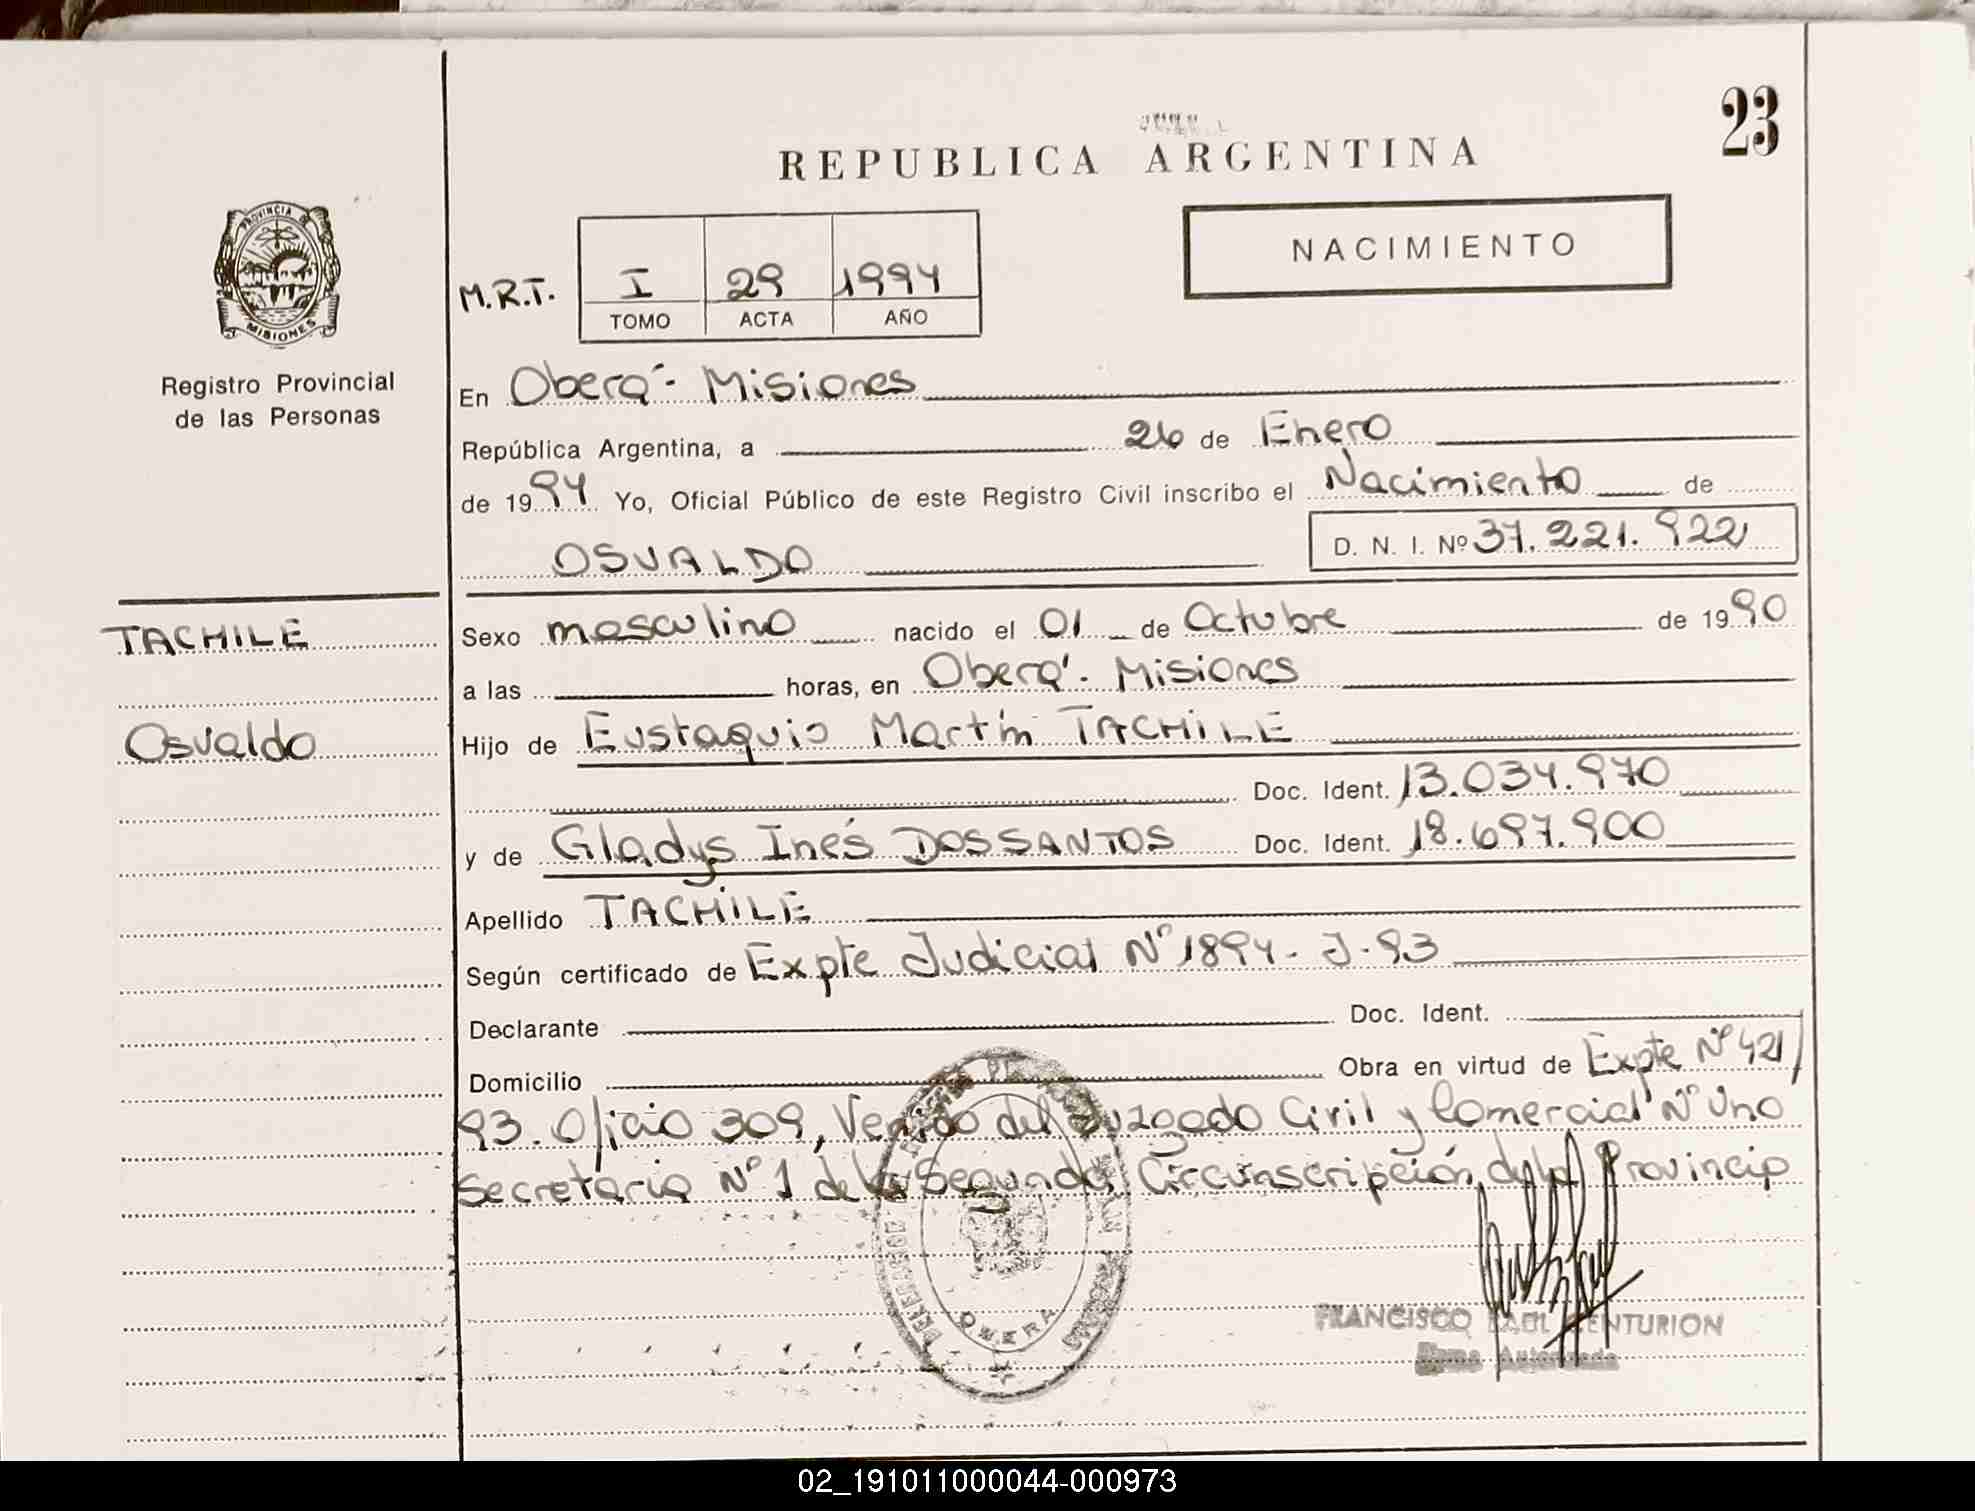 23
REPUBLICA ARGENTINA
PROVINCIA DE
MISIONES
Registro Provincial
de las Personas
NACIMIENTO
M.R.T. I 29 1994
TOMO ACTA AÑO
En Oberá - Misiones
República Argentina, a 26 de Enero
de 1994 Yo, Oficial Público de este Registro Civil inscribo el Nacimiento de
OSVALDO D. N. I. Nº 37.221.922
TACHILE
Osvaldo
Sexo masculino nacido el 01 de Octubre de 1990
a las horas, en Oberá - Misiones
Hijo de Eustaquio Martín TACHILE
Doc. Ident. 13.034.970
y de Gladys Inés DOSSANTOS Doc. Ident. 18.697.900
Apellido TACHILE
Según certificado de Expte Judicial Nº 1894 - J - 93
Declarante Doc. Ident.
Domicilio Obra en virtud de Expte Nº 421/
93. Oficio 309, Venido del Juzgado Civil y Comercial Nº Uno
Secretaria Nº 1 de la Segunda Circunscripción de la Provincia
OBERA
FRANCISCO RAUL CENTURION
Firma Autorizada
02_191011000044-000973